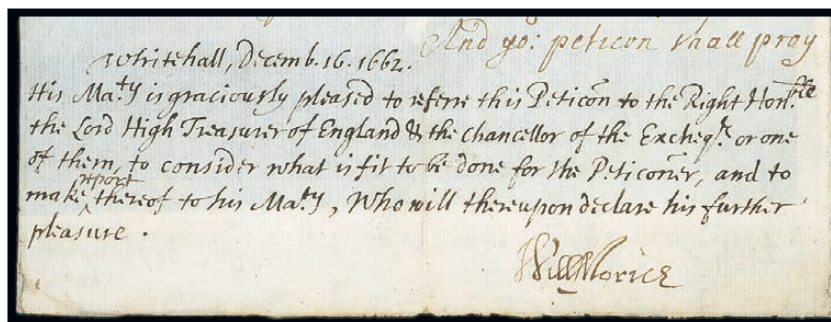 And yo: peticon shall pray
Whitehall, Decemb. 16. 1662.
His Ma.ty is graciously pleased to referre this Peticõn to the Right Hon.ble
the Lord High Treasurer of England & the Chancellor of the Excheqr. or one
of them, to consider what is fit to be done for the Peticoner, and to
report
make ^ thereof to his Ma.ty, Who will thereupon declare his further
pleasure.
Will Morice